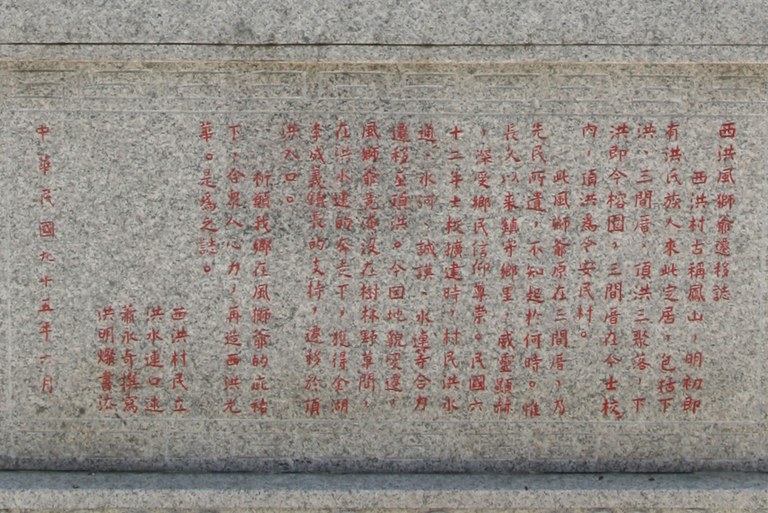 西洪風獅爺遷移誌
西洪村古稱鳳山，明初即
有洪氏族人來此定居，包括下
洪、三間厝、頂洪三聚落，下
洪即今榕園，三間厝在今士校
內，頂洪為今安民村。
此風獅爺原在三間厝，乃
先民所遺，不知起於何時。惟
長久以來鎮守鄉里，威靈顯赫
，深受鄉民信仰尊崇。民國六
十二年士校擴建時，村民洪水
通、水河、誠談、水連等合力
遷移至頂洪。今因地貌變遷，
風獅爺竟淹沒在樹林野草間，
在洪水連的奔走下，獲得金湖
李成義鎮長的支持，遷移於頂
洪入口。
祈願我鄉在風獅爺的庇祐
下，合眾人心力，再造西洪光
華。是為之誌。
西洪村民立
洪水連口述
永奇撰寫
洪明燦書法
中華民國九十五年一月